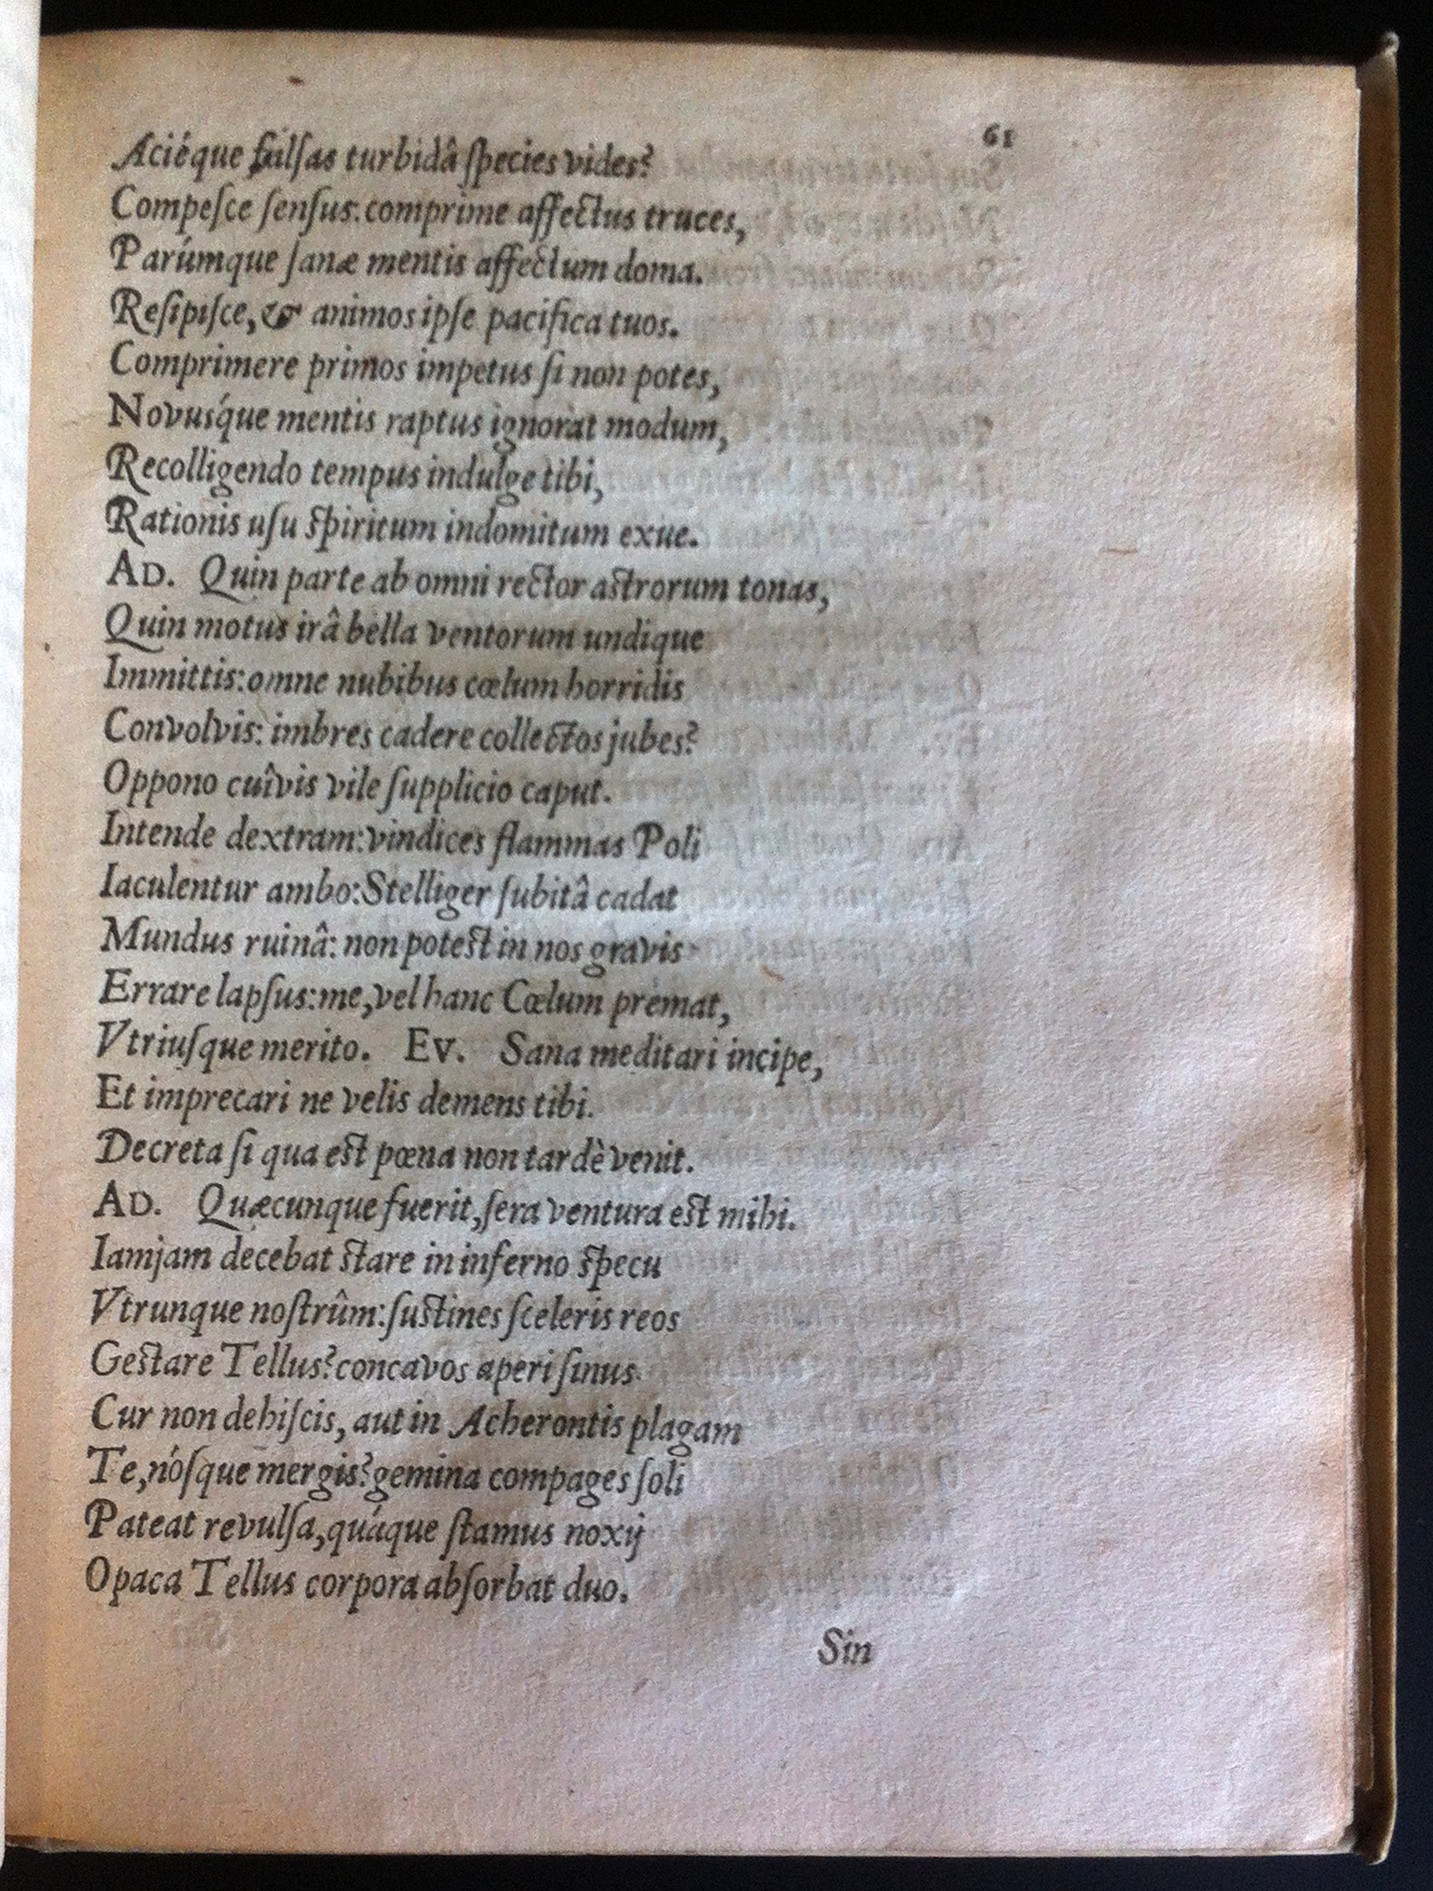 61
Aciéque falſas turbidâ ſpecies vides?
Compeſce ſenſus: comprime affectus truces,
Parúmque ſanæ mentis affectum doma.
Reſipiſce, & animos ipſe pacifica tuos.
Comprimere primos impetus ſi non potes,
Novuśque mentis raptus ignorat modum,
Recolligendo tempus indulge tibi,
Rationis uſu ſpiritum indomitum exue.
AD. Quin parte ab omni rector aſtrorum tonas,
Quin motus irâ bella ventorum undique
Immittis: omne nubibus cœlum horridis
Convolvis: imbres cadere collectos jubes?
Oppono cuîvis vile ſupplicio caput.
Intende dextram: vindices flammas Poli
Iaculentur ambo: Stelliger ſubitâ cadat
Mundus ruinâ: non poteſt in nos gravis
Errare lapſus: me, vel hanc Cœlum premat,
Vtriuſque merito. EV. Sana meditari incipe,
Et imprecari ne velis demens tibi.
Decreta ſi qua eſt pœna non tardè venit.
AD. Quæcunque fuerit, ſera ventura eſt mihi.
Iamjam decebat ſtare in inferno ſpecu
Vtrunque noſtrûm: ſuſtines ſceleris reos
Geſtare Tellus? concavos aperi ſinus
Cur non dehiſcis, aut in Acherontis plagam
Te, nóſque mergis? gemina compages ſoli
Pateat revulſa, quáque ſtamus noxij
Opaca Tellus corpora abſorbat duo.
Sin